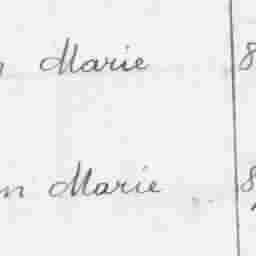 Marie 8
n Marie 8